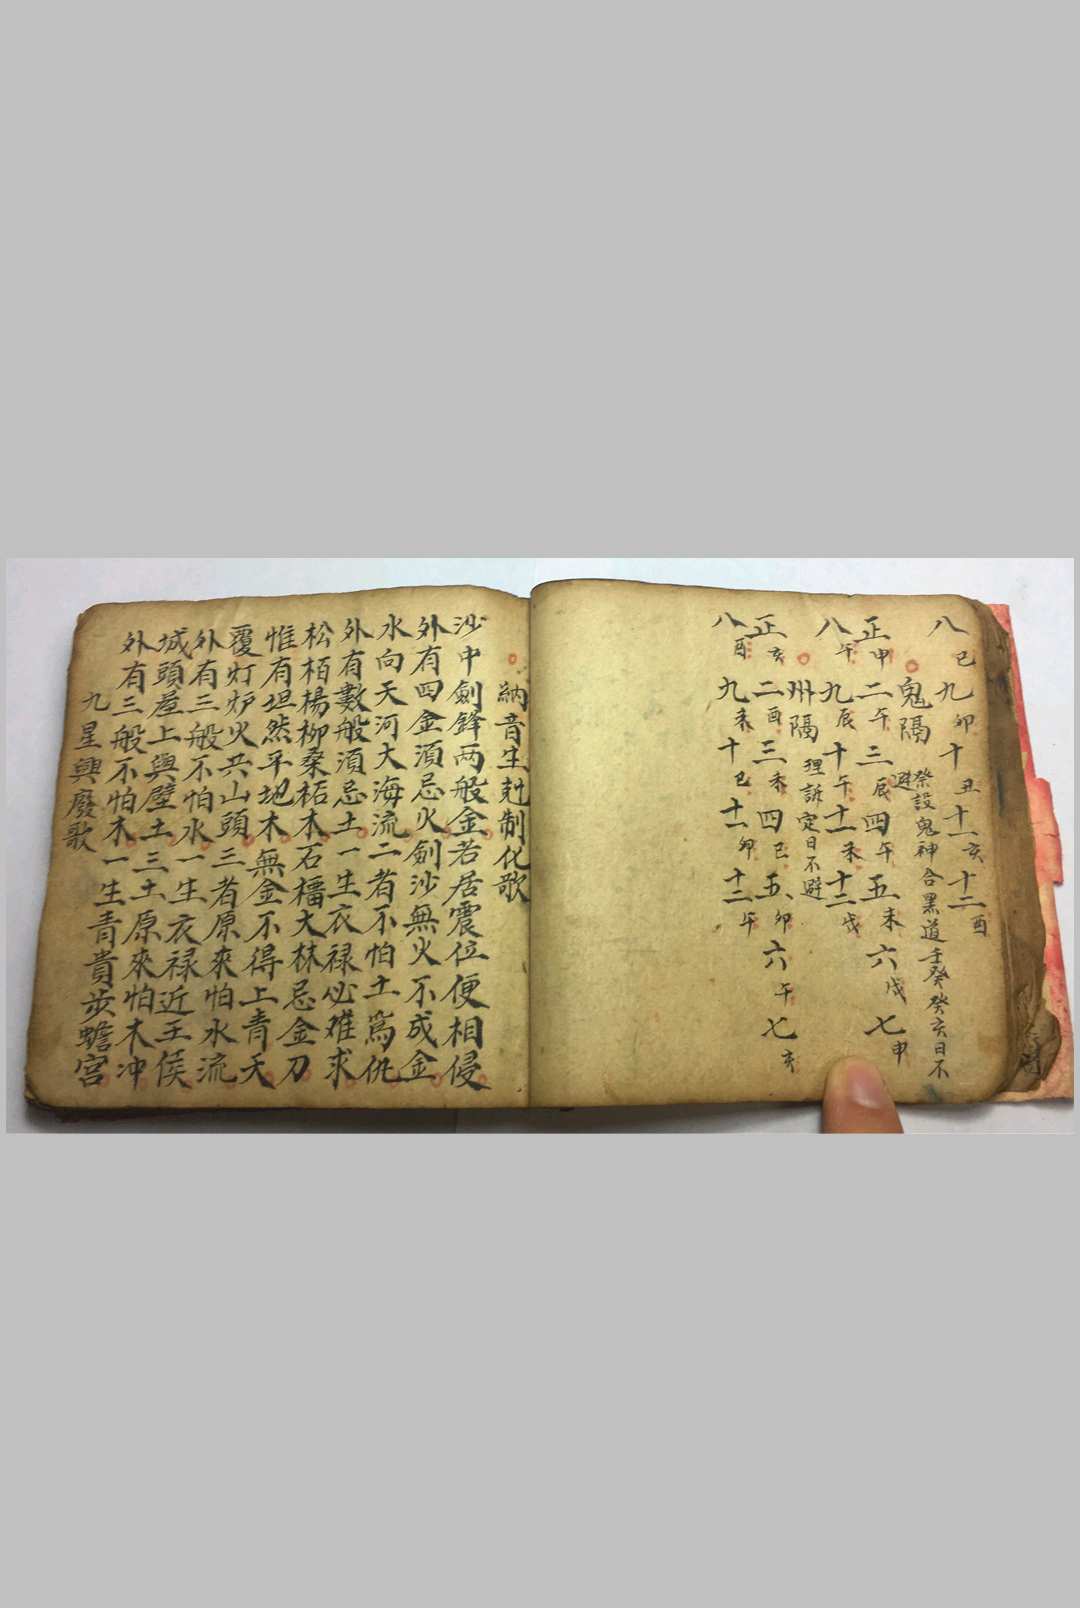 八巳九卯十丑十一亥十二酉
鬼隔 祭設鬼神合黑道壬癸癸亥日不
避
正申二午三辰四午五未六戌七申
八午九辰十午十一未十二戌
州隔 理訴定日不避
正亥二酉三未四巳五卯六午七亥
八酉九未十巳十一卯十二午
納音生剋制化歌
沙中劍鋒两般金若居震位便相侵
外有四金須忌火劍沙無火不成金
水向天河大海流二者不怕土為仇
外有數般須忌土一生衣禄必难求
松栢楊柳桑柘木石榴大林忌金刀
惟有坦然平地木無金不得上青天
覆灯炉火共山頭三者原來怕水流
外有三般不怕水一生衣禄近王侯
城頭屋上與壁土三土原來怕木冲
外有三般不怕木一生青貴步蟾宮
九星興廢歌